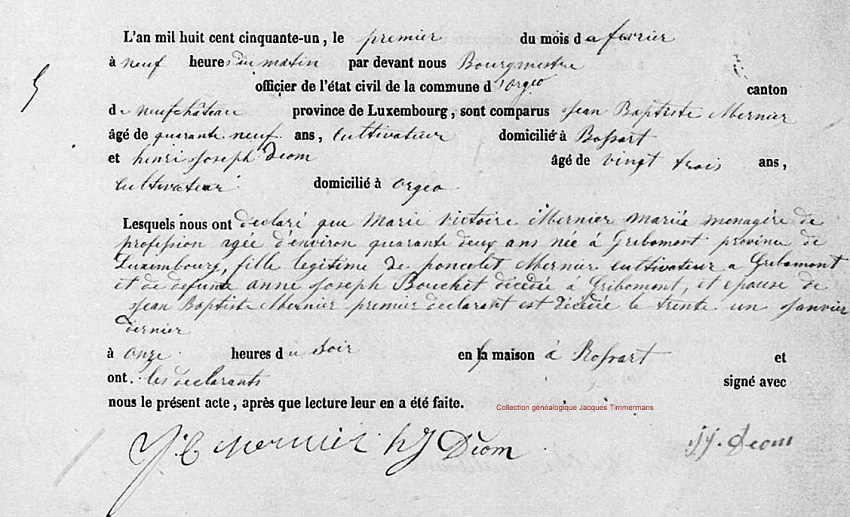 L'an mil huit cent cinquante-un, le premier du mois de fevrier
à neuf heures du matin par devant nous Bourgmestre
officier de l'état civil de la commune d'orgeo canton
de neufchâteau province de Luxembourg, sont comparus Jean Baptiste Mernier
âgé de quarante neuf ans, Cultivateur domicilié à Rossart
et henri Joseph Deom âgé de vingt trois ans,
Cultivateur domicilié à orgeo
Lesquels nous ont declaré que Marie Victoire Mernier mariée menagère de
profession agée d'environ quarante deux ans née à Gribomont province de
Luxembourg, fille legitime de poncelet Mernier cultivateur a Gribomont
et de defunte anne Joseph Bouchet décédée à Gribomont, et epouse de
Jean Baptiste Mernier premier declarant est décédée le trente un Janvier
dernier
à onze heures du soir en sa maison à Rossart et
ont les declarants signé avec
nous le présent acte, après que lecture leur en a été faite.
Collection généalogique Jacques Timmermans
J B Mernier h J Deom JJ. Deom